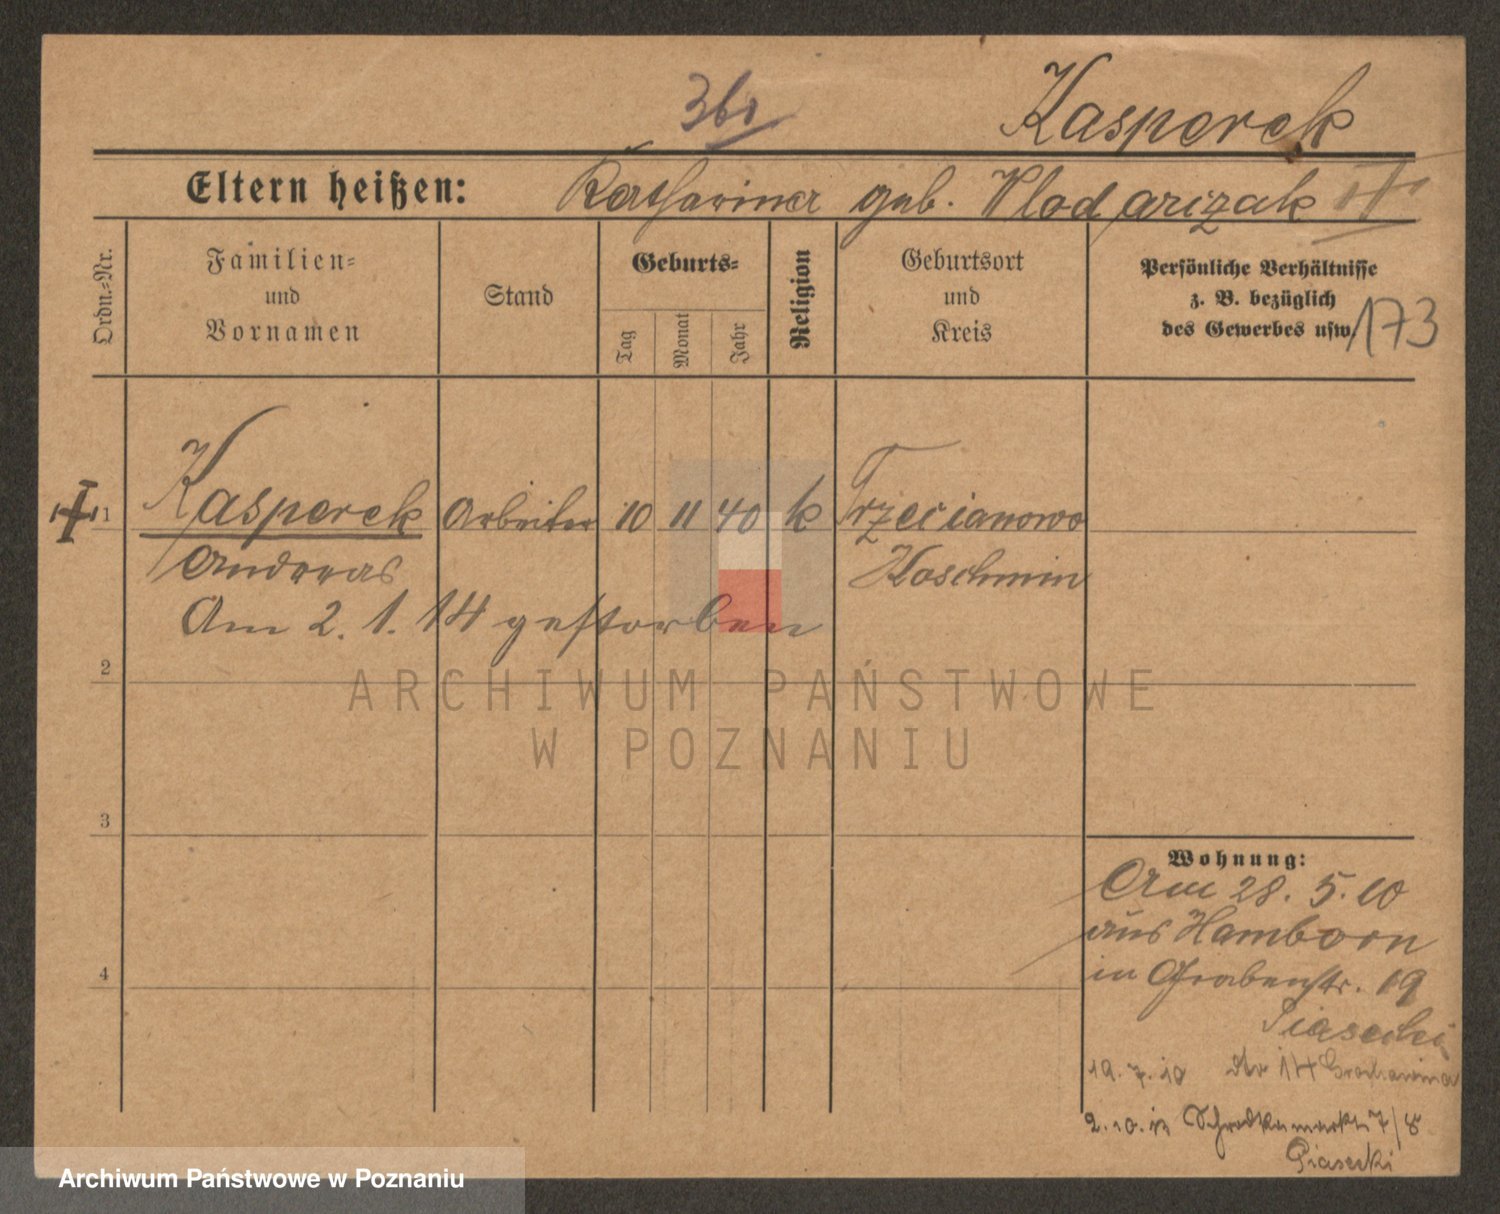 Kasperek
Eltern heißen: Katharina geb. Wlodarizak
Ordn.-Nr.
Familien-
und
Vornamen
Stand
Geburts-
Tag
Monat
Jahr
Religion
Geburtsort
und
Kreis
Persönliche Verhältnisse
z. B. bezüglich
des Gewerbes usw.
173
1 Kasperek Arbeiter 10 11 40 k Trzecianowo
Andreas Koschmin
Am 2. 1. 14 gestorben
2
3
4
Wohnung:
Am 28. 5. 10
aus Hamborn
in Grabenstr. 19
Piasecki
19. 7. 10 dto 14
2. 10. Schrodkamarkt 7/8
Piasecki
ARCHIWUM PAŃSTWOWE
W POZNANIU
Archiwum Państwowe w Poznaniu